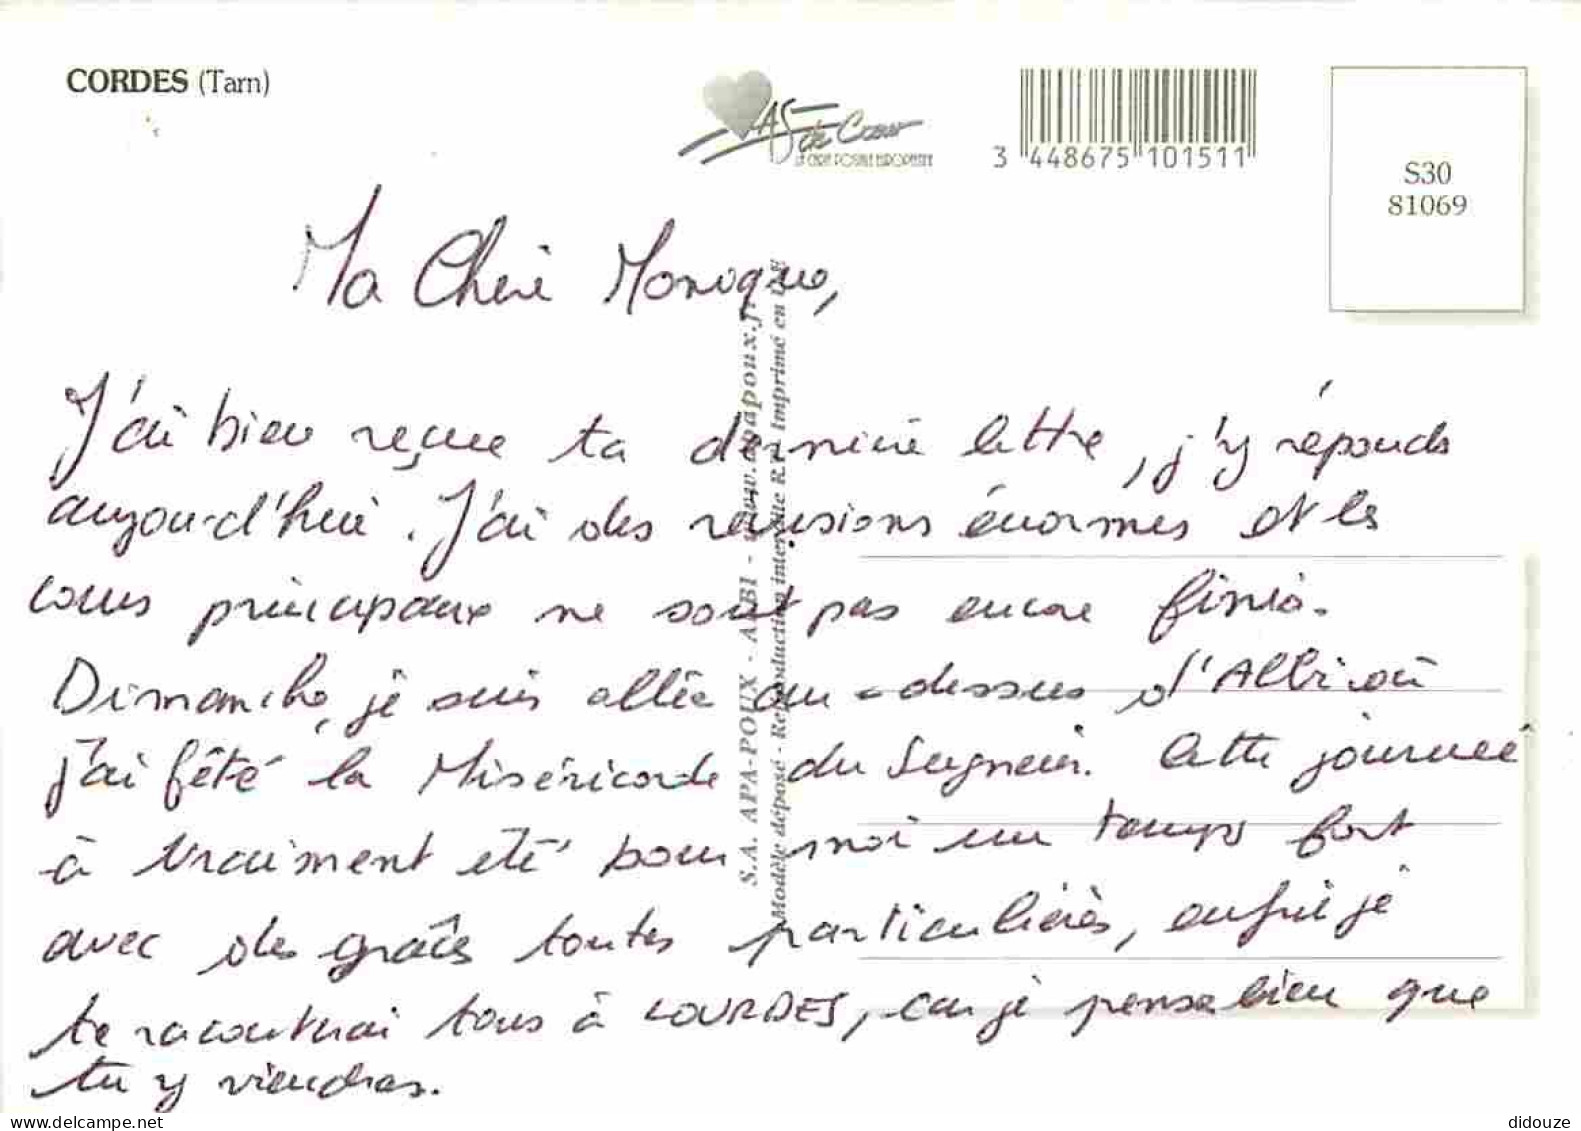 CORDES (Tarn)
As de Cœur
LA CARTE POSTALE EUROPEENNE
3 448675 101511
S30
81069
Ma Chère Monique,
J'ai bien reçue ta dernière lettre, j'y réponds
aujourd'hui. J'ai des révisions énormes et les
cours principaux ne sont pas encore finis.
Dimanche, je suis allée au-dessus d'Albi où
j'ai fêté la Miséricorde du Seigneur. Cette journée
à vraiment été pour moi un temps fort
avec des grâces toutes particulières, enfin je
te raconterai tous à LOURDES, car je pense bien que
tu y viendras.
S.A. APA-POUX - ALBI - www.apapoux.fr
Modèle déposé - Reproduction interdite R.C. Imprimé en CEE
delcampe.net
didouze